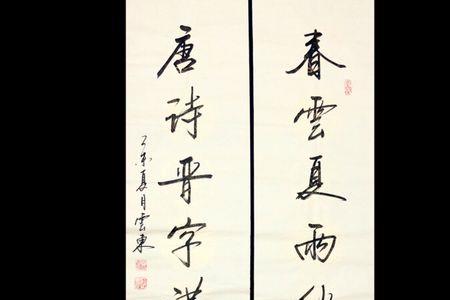 春雲夏雨
唐詩晉字
未夏月雲東